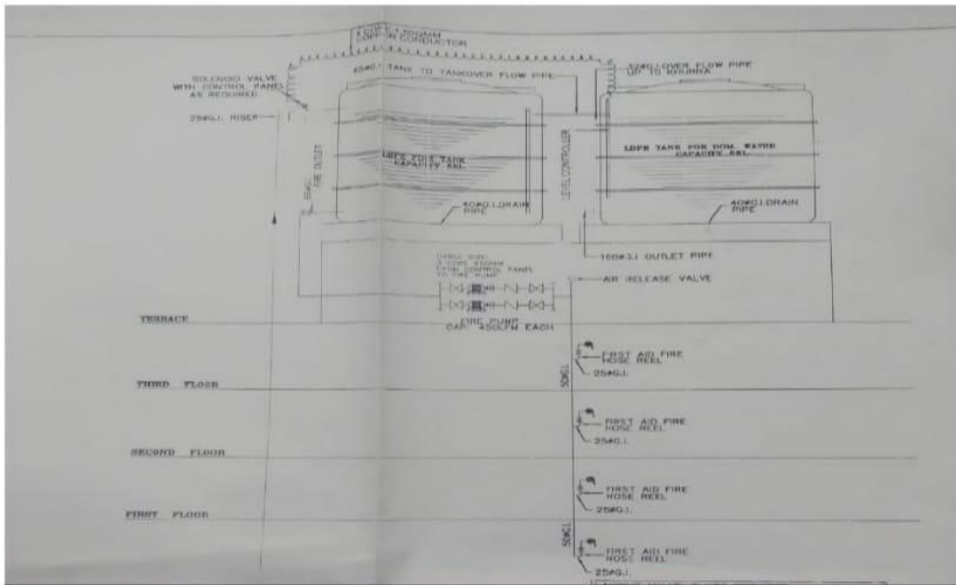 COPPER CONDUCTOR
SOLENOID VALVE
WITH CONTROL PANEL
AS REQUIRED
25#G.I. RISER
65#G.I. TANK TO TANKOVER FLOW PIPE
32#G.I.OVER FLOW PIPE
UP TO
FIRE OUTLET
TANK
CAPACITY
LEVEL CONTROLLER
LDPE TANK FOR DOM. WATER
CAPACITY
40#G.I.DRAIN
PIPE
40#G.I.DRAIN
PIPE
100#G.I OUTLET PIPE
CABLE SIZE:
3 CORE
FROM CONTROL PANEL
TO FIRE PUMP
AIR RELEASE VALVE
TERRACE
FIRE PUMP
CAP. 450LPM EACH
FIRST AID FIRE
HOSE REEL
25#G.I.
THIRD FLOOR
FIRST AID FIRE
HOSE REEL
25#G.I.
SECOND FLOOR
FIRST AID FIRE
HOSE REEL
25#G.I.
FIRST FLOOR
FIRST AID FIRE
HOSE REEL
25#G.I.